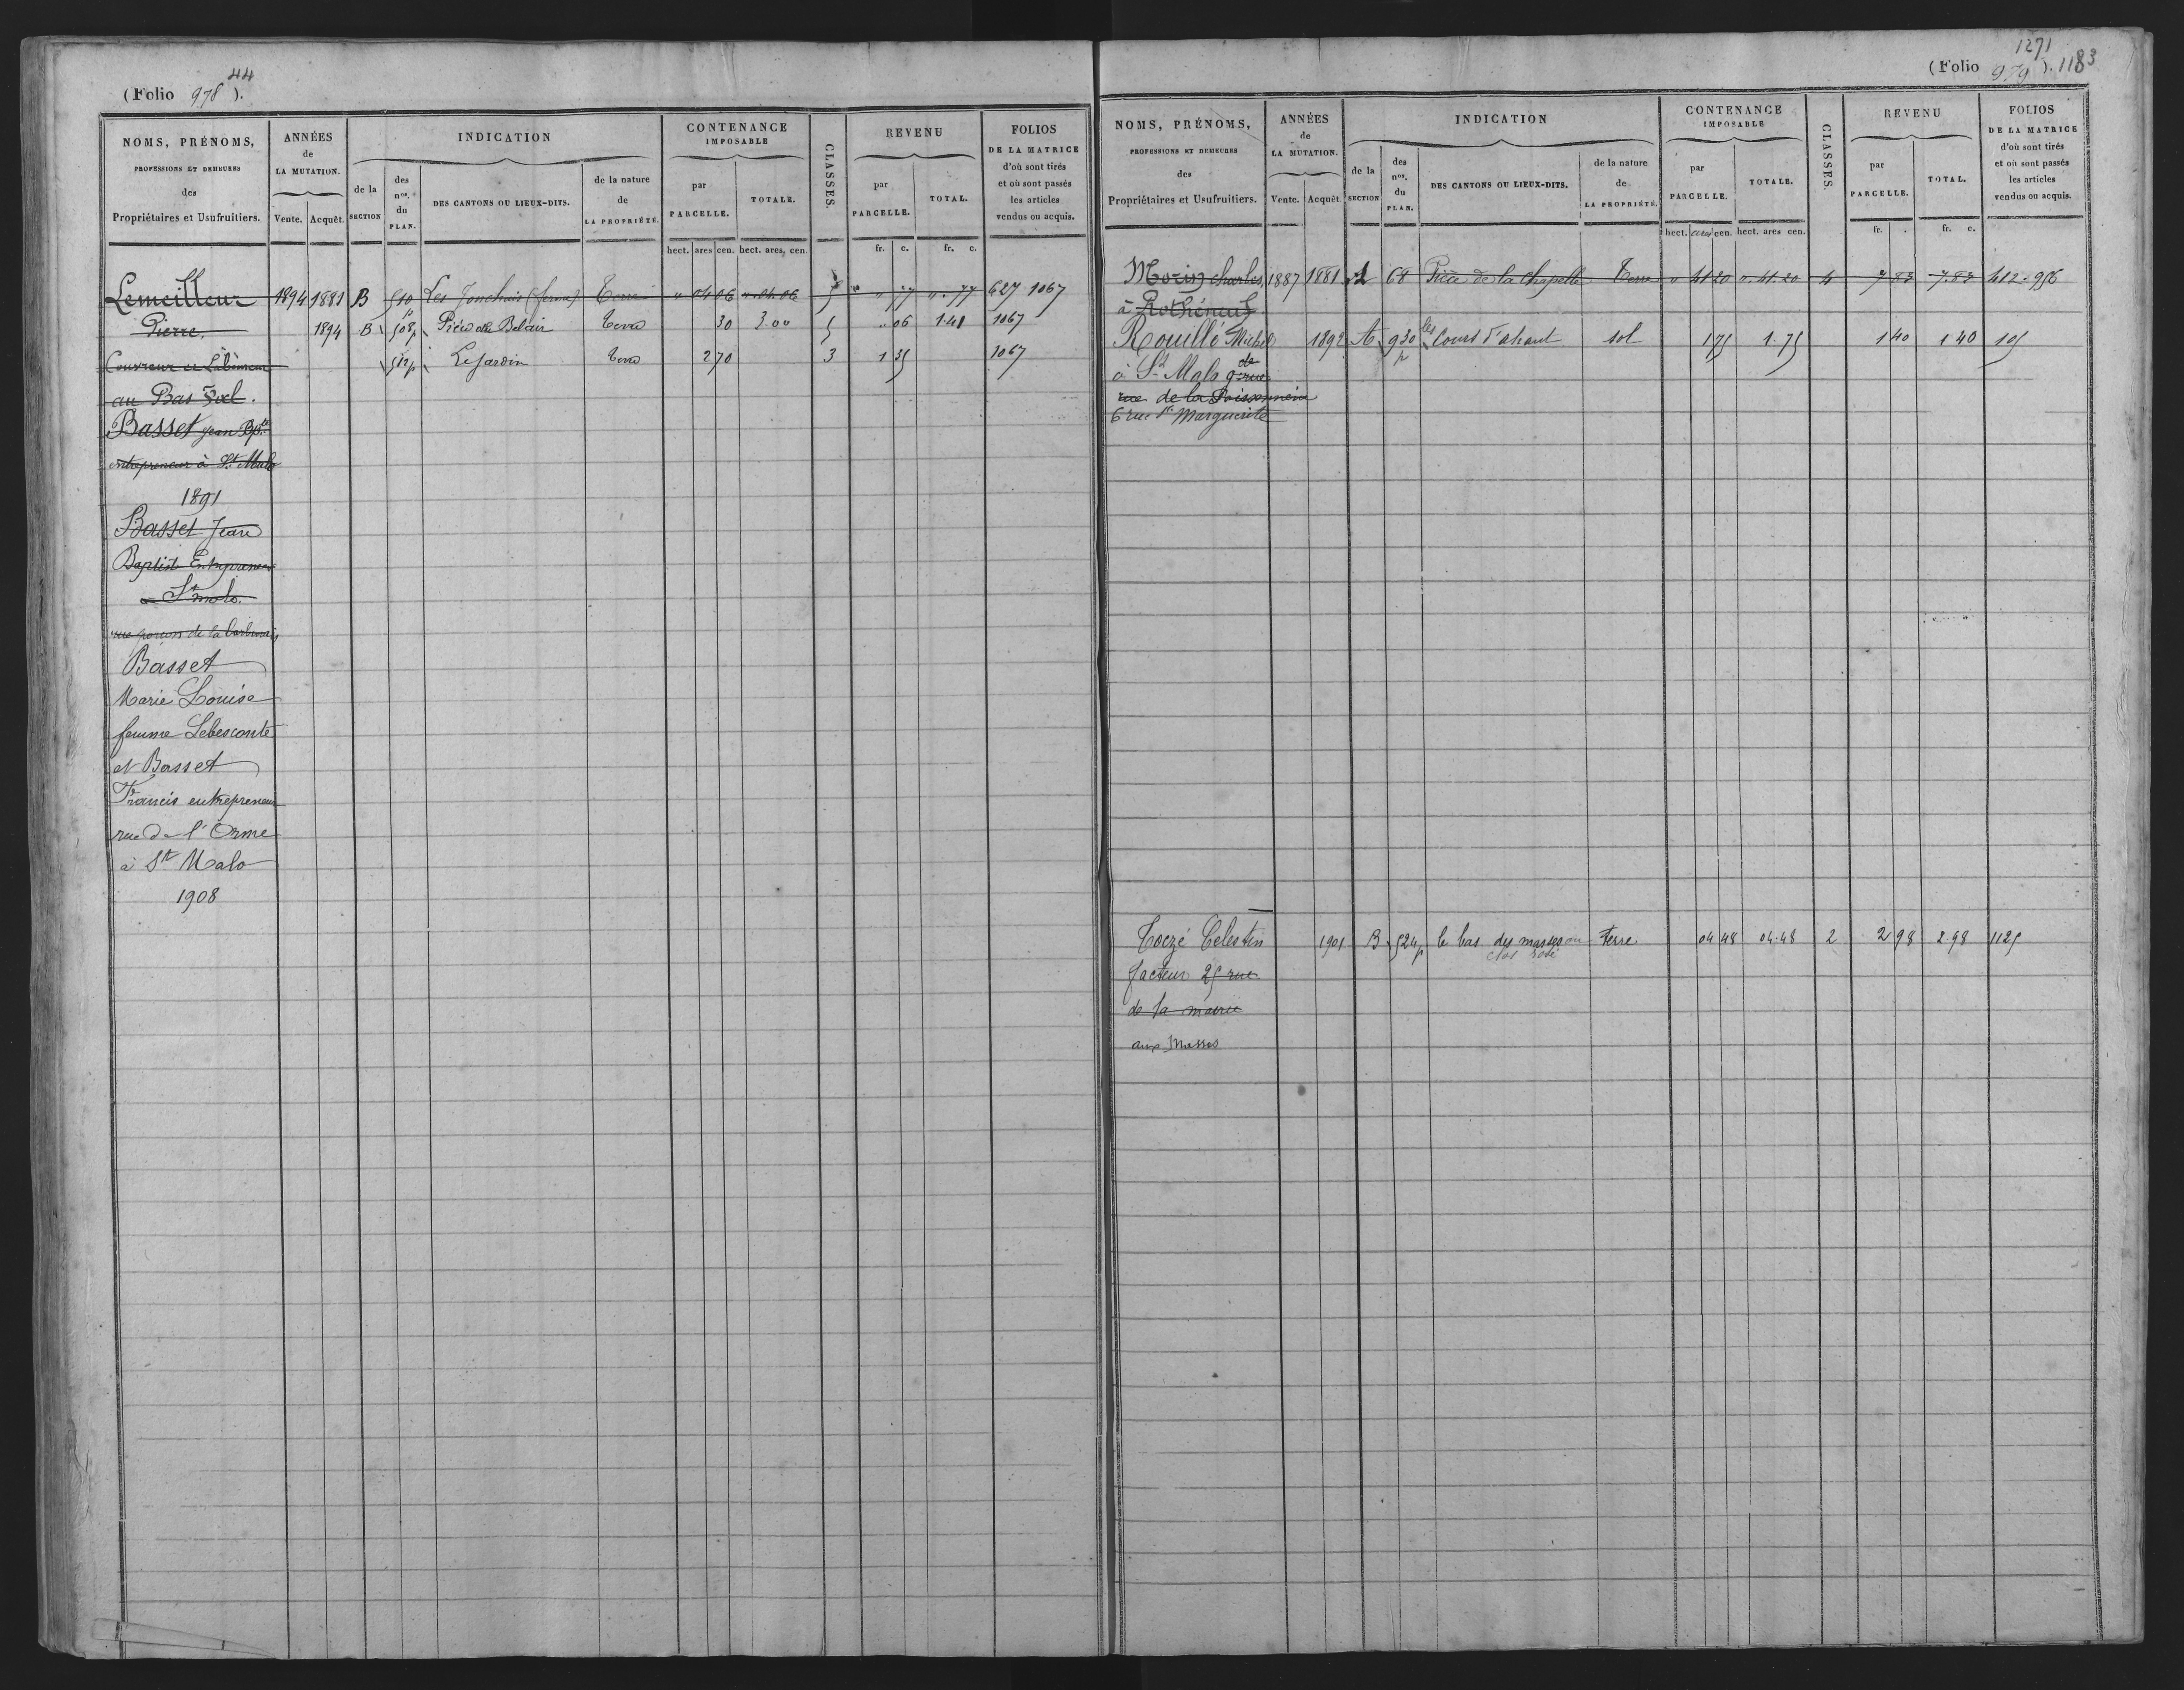 44
(Folio 978).
NOMS, PRÉNOMS,
PROFESSIONS ET DEMEURES
des
Propriétaires et Usufruitiers.
ANNÉES
de
LA MUTATION.
Vente. Acquêt.
INDICATION
de la
SECTION
des
nos.
du
PLAN.
DES CANTONS OU LIEUX-DITS.
de la nature
de
LA PROPRIÉTÉ.
CONTENANCE
IMPOSABLE
par
PARCELLE.
TOTALE.
hect. ares cen. hect. ares, cen.
CLASSES.
REVENU
par
PARCELLE.
TOTAL.
fr. c. fr. c.
FOLIOS
DE LA MATRICE
d'où sont tirés
et où sont passés
les articles
vendus ou acquis.
Lemeilleur 1894 1881 B 510 Les Jonchais Terre " 04 06 " 04 06 5 " 77 " 77 627 1067
Pierre. 1894 B 508p Pièce du Belair Terre 30 3.00 5 " 06 1.41 1067
Couvreur et Laboureur 512p Le Jardin Terre 2 70 3 1 35 1067
au Bas
Basset Jean Bpte
entrepreneur à St Malo
1891
Basset Jean
Baptiste Entrepreneur
à St malo.
Basset
Marie Louise
femme Lebesconte
et Basset
Francis entrepreneur
rue de l'Orme
à St Malo
1908
1271
(Folio 979). 1183
NOMS, PRÉNOMS,
PROFESSIONS ET DEMEURES
des
Propriétaires et Usufruitiers.
ANNÉES
de
LA MUTATION.
Vente. Acquêt.
INDICATION
de la
SECTION
des
nos.
du
PLAN.
DES CANTONS OU LIEUX-DITS.
de la nature
de
LA PROPRIÉTÉ.
CONTENANCE
IMPOSABLE
par
PARCELLE.
TOTALE.
hect. ares cen. hect. ares cen.
CLASSES.
REVENU
par
PARCELLE.
TOTAL.
fr. . fr. c.
FOLIOS
DE LA MATRICE
d'où sont tirés
et où sont passés
les articles
vendus ou acquis.
Morin Charles, 1887 1881 A 68 Pièce de la Chapelle Terre " 41 20 " 41.20 4 7 83 7.83 412.956
à Rothéneuf
Rouillé Michel 1892 A 930p les Cours d'ahaut sol 1 75 1.75 1 40 1 40 105
à St Malo
rue de la Poissonnerie
6 rue Ste Marguerite
Toezé Celestin 1901 B 524p le bas des masses ou Terre 04 48 04.48 2 2 98 2.98 1125
clos
facteur 25 rue
de la mairie
aux Masses